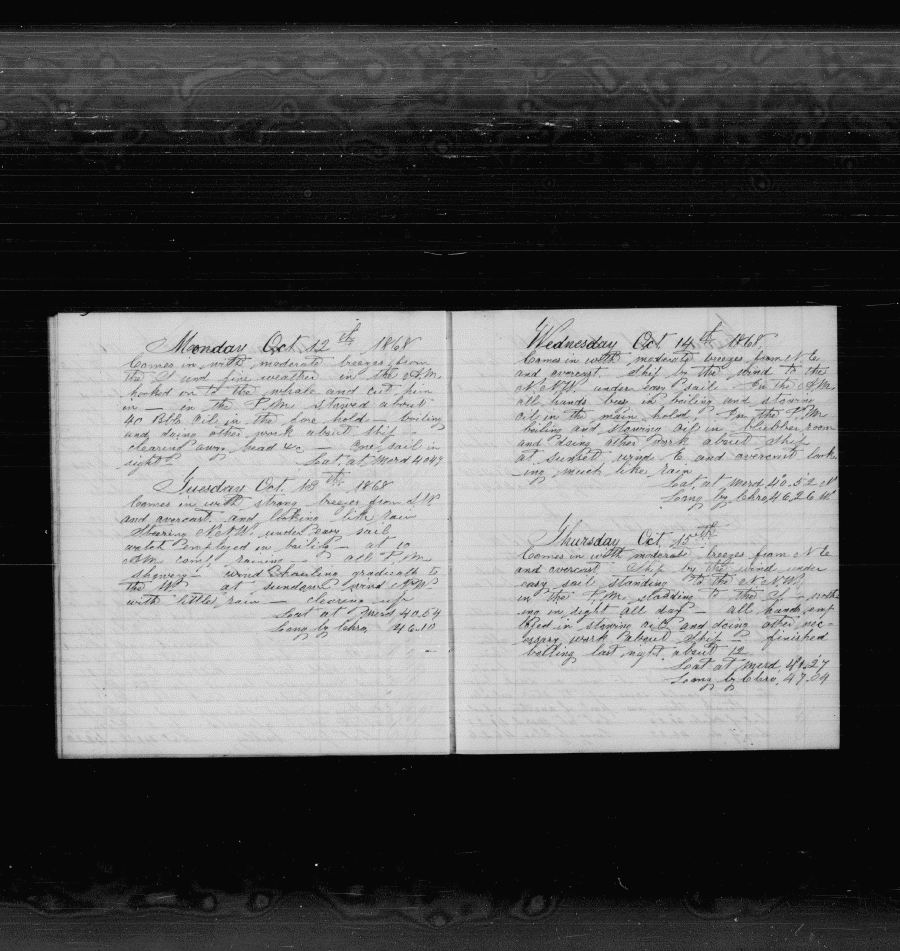 Monday Oct 12th 1868
Comes in with moderate breezes from
the S and fine weather in the A.M.
hooked on to the whale and cut him
in — in the P.M. stowed about
40 Bbls Oil in the fore hold — boiling
and doing other work about ship —
clearing away head &c — One sail in
sight Lat at Merd 40.49
Tuesday Oct. 13th 1868
Comes in with strong breezes from
and overcast and looking like rain
Steering N.N.W. under easy sail
watch employed in boiling — at 10
A.M. comd raining — all P.M.
showery — wind hauling gradually to
the W. at sundown wind N.W.
with little rain — clearing up
Lat at Merd 40.54
Long by Chro, 46.10
Wednesday Oct 14th 1868
Comes in with moderate breezes from N E
and overcast Ship by the wind to the
N.N.W. under easy sail In the A.M.
all hands busy in boiling and stowing
oil in the main hold In the P.M.
boiling and stowing oil in blubber room
and doing other work about ship
at sunset wind E and overcast look-
ing much like rain
Lat at Merd 40.52 N
Long by Chro, 46.26 W
Thursday Oct 15th
Comes in with moderate breezes from N E
and overcast Ship by the wind under
easy sail standing to the N.N.W.
in the P.M. standing to the — noth
ing in sight all day — all hands emp
loyed in stowing oil and doing other nec-
essary work about ship — finished
boiling last night about 12
Lat at Merd, 41.27
Long by Chro, 47.04